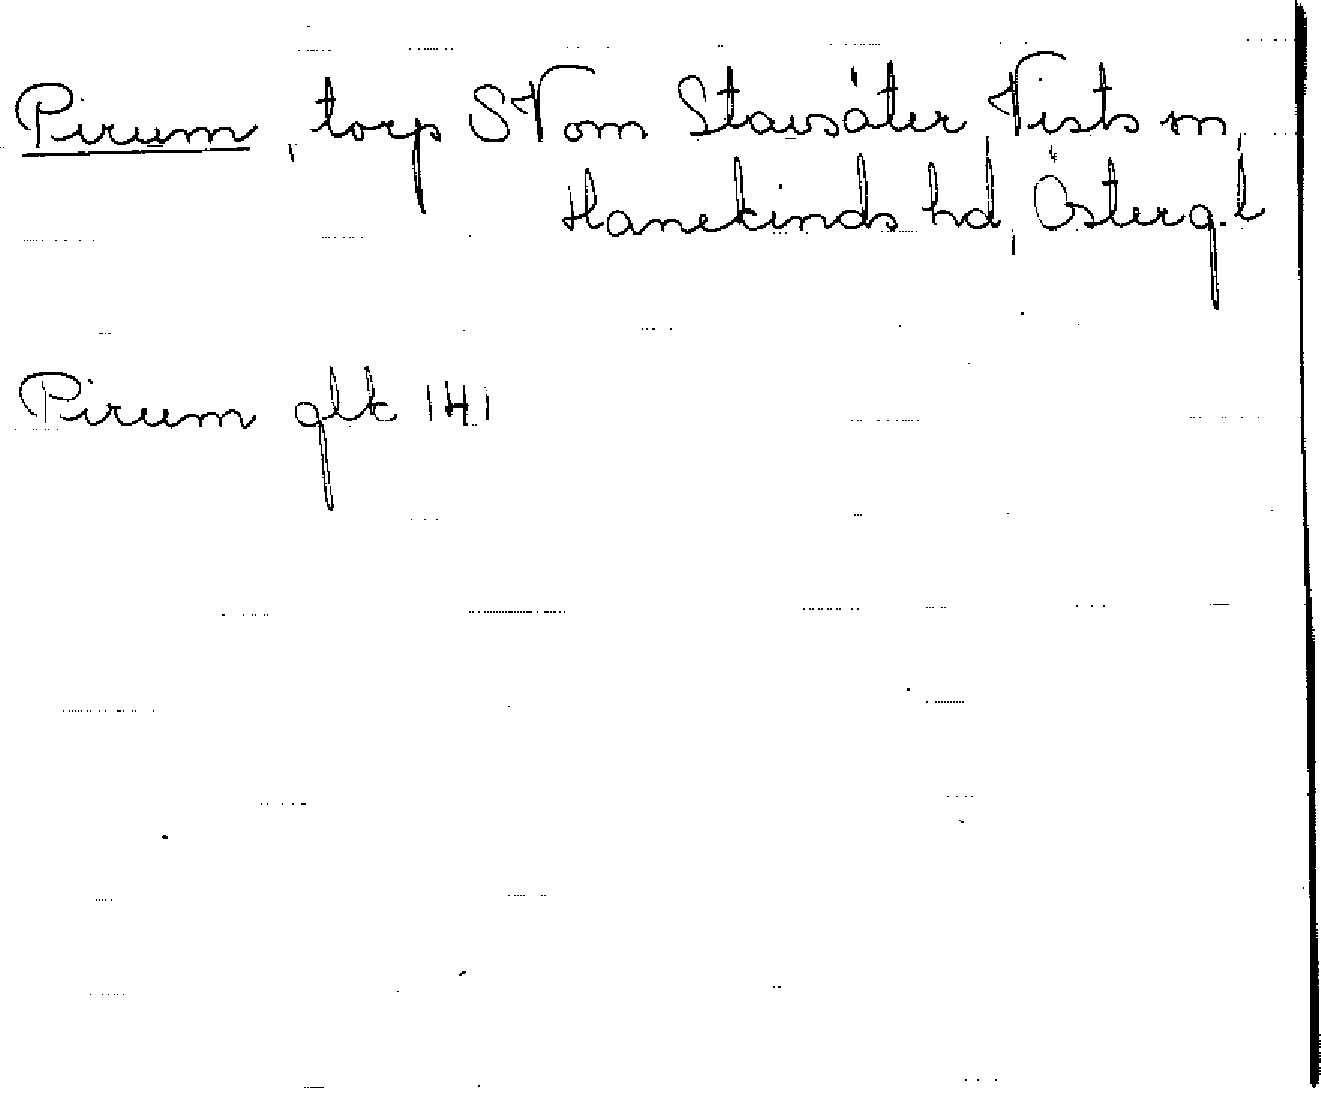 Pirum, torp SV om Stavsäter, Vists sn,
Hanekinds hd, Östergl.
Pirum glk 141